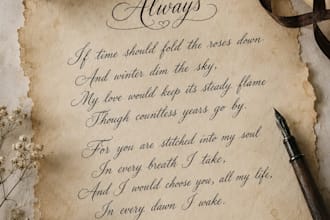 Always
If time should fold the roses down
And winter dim the sky,
My love would keep its steady flame
Though countless years go by.
For you are stitched into my soul
In every breath I take,
And I would choose you, all my life,
In every dawn I wake.